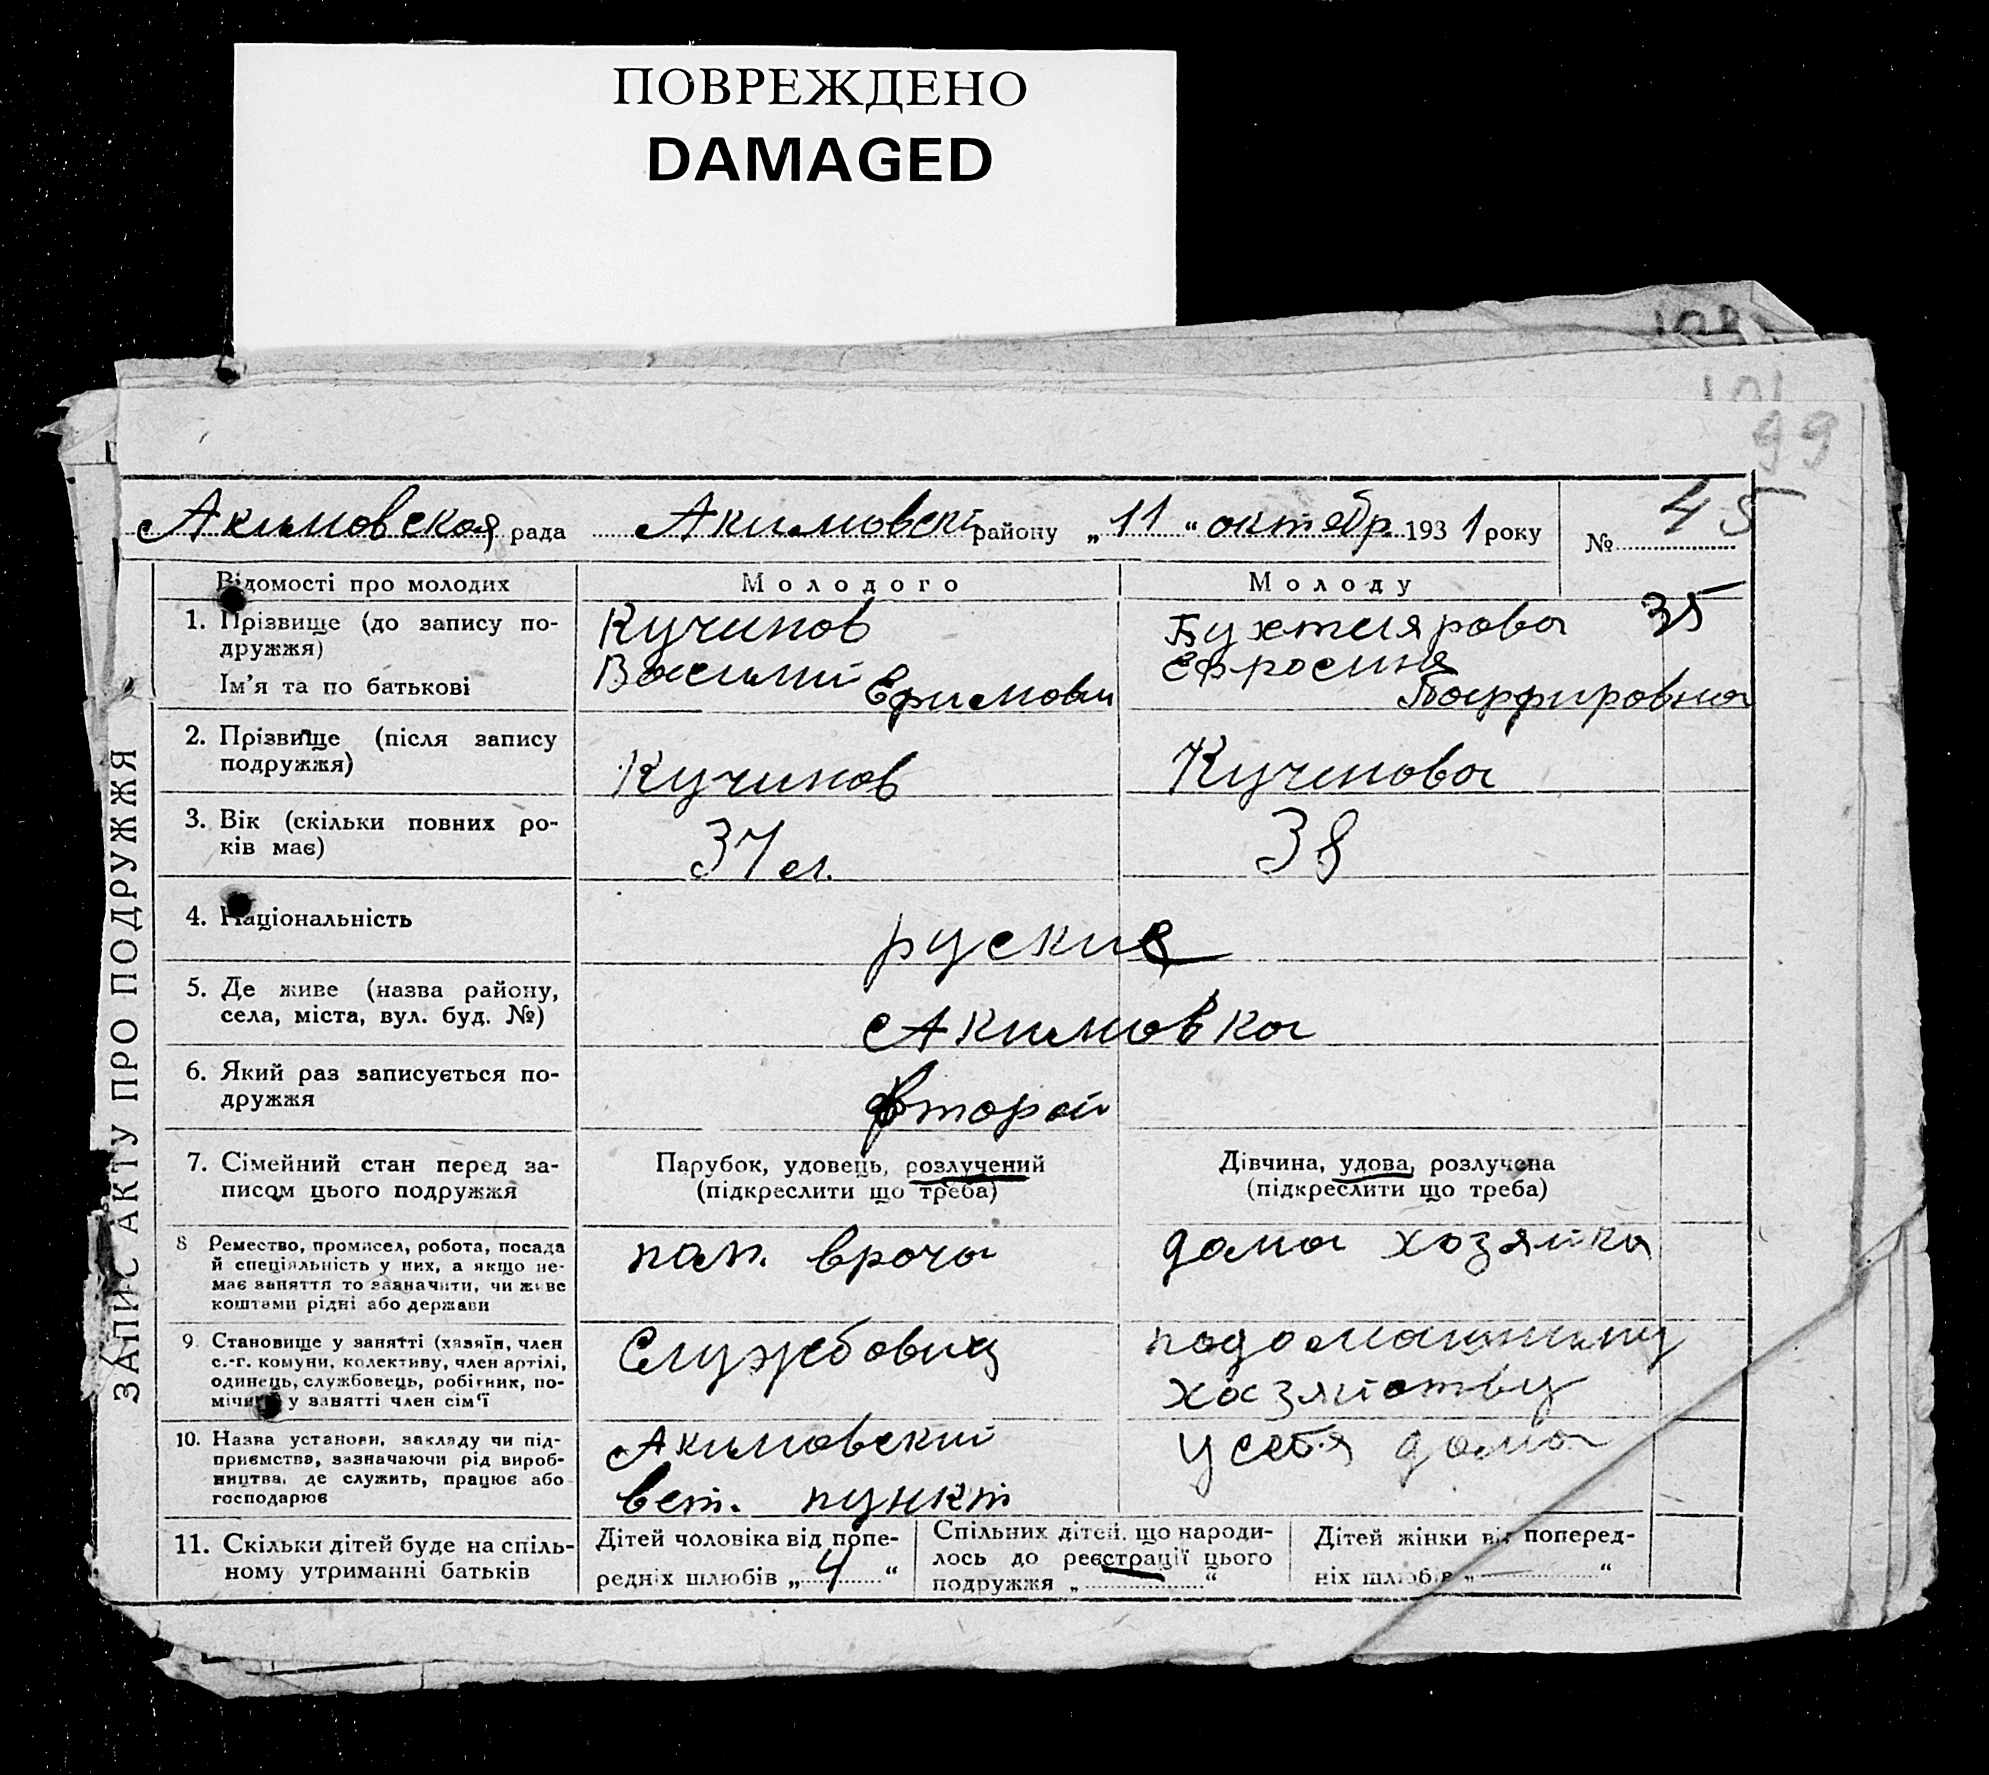 ПОВРЕЖДЕНО
DAMAGED
99
Акимовская рада Акимовск району „ 11 “ октябр. 1931 року № 45
Відомості про молодих Молодого Молоду
35
1. Прізвище (до запису по-
дружжя)
Ім'я та по батькові
Кучинов
Василий Ефимови
Бухтиярова
Ефросиня
Парфировна
2. Прізвище (після запису
подружжя)
Кучинов
Кучинова
3. Вік (скільки повних ро-
ків має)
37 л.
38
4. Національність
руские
5. Де живе (назва району,
села, міста, вул. буд. №)
Акимовка
6. Який раз записується по-
дружжя
второй
7. Сімейний стан перед за-
писом цього подружжя
Парубок, удовець, розлучений
(підкреслити що треба)
Дівчина, удова, розлучена
(підкреслити що треба)
8 Ремество, промисел, робота, посада
й спеціяльність у них, а якщо не-
має заняття то зазначити, чи живе
коштами рідні або держави
пом. врача
дома хозяйка
9. Становище у занятті (хазяїн, член
с.-г. комуни, колективу, член артілі,
одинець, службовець, робітник, по-
мічний у занятті член сім'ї
Службовиц
подомашниму
хазяйству
10. Назва установи, закладу чи під-
приємства, зазначаючи рід вироб-
ництва, де служить, працює або
господарює
Акимовский
вет. пункт
у себя дома
11. Скільки дітей буде на спіль-
ному утриманні батьків
Дітей чоловіка від попе-
редніх шлюбів „ 4 “
Спільних дітей, що народи-
лось до реєстрації цього
подружжя „ “
Дітей жінки від поперед-
ніх шлюбів „ “
ЗАПИС АКТУ ПРО ПОДРУЖЖЯ